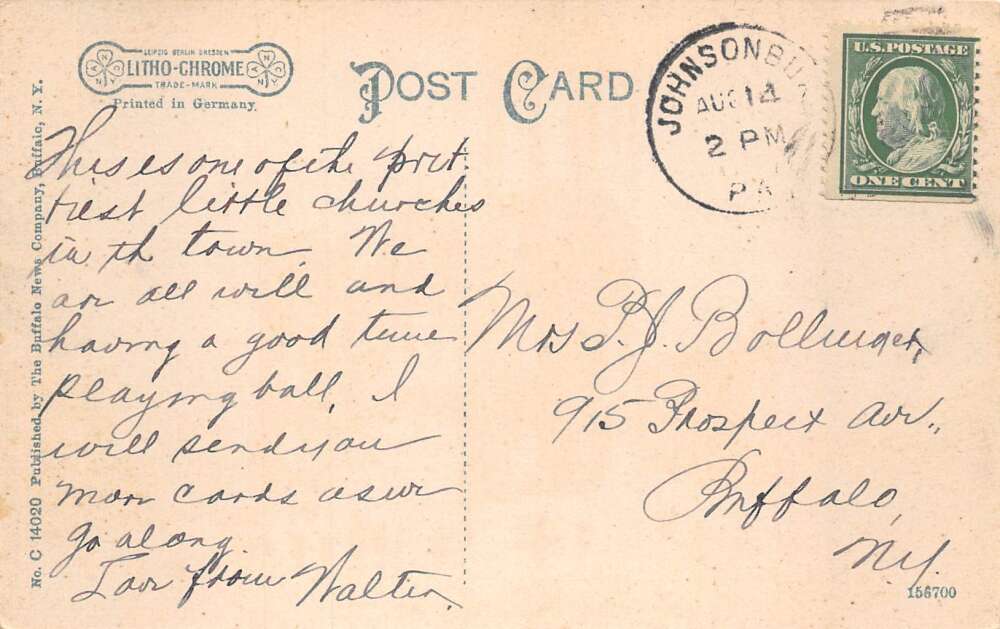 LEIPZIG BERLIN DRESDEN
LITHO-CHROME
TRADE-MARK
A N C N Y
A N C N Y
Printed in Germany.
POST CARD
JOHNSONBU
AUG 14
2 PM
PA
U.S. POSTAGE
ONE CENT
This is one of the pret
tiest little churches
in th town. We
ar all well and
having a good time
playing ball, I
will send you
mor cards as we
go along.
Love from Walter.
Mrs P. J. Bollinger,
915 Prospect Av.,
Buffalo,
N.Y.
No. C 14020 Published by The Buffalo News Company, Buffalo, N. Y.
156700